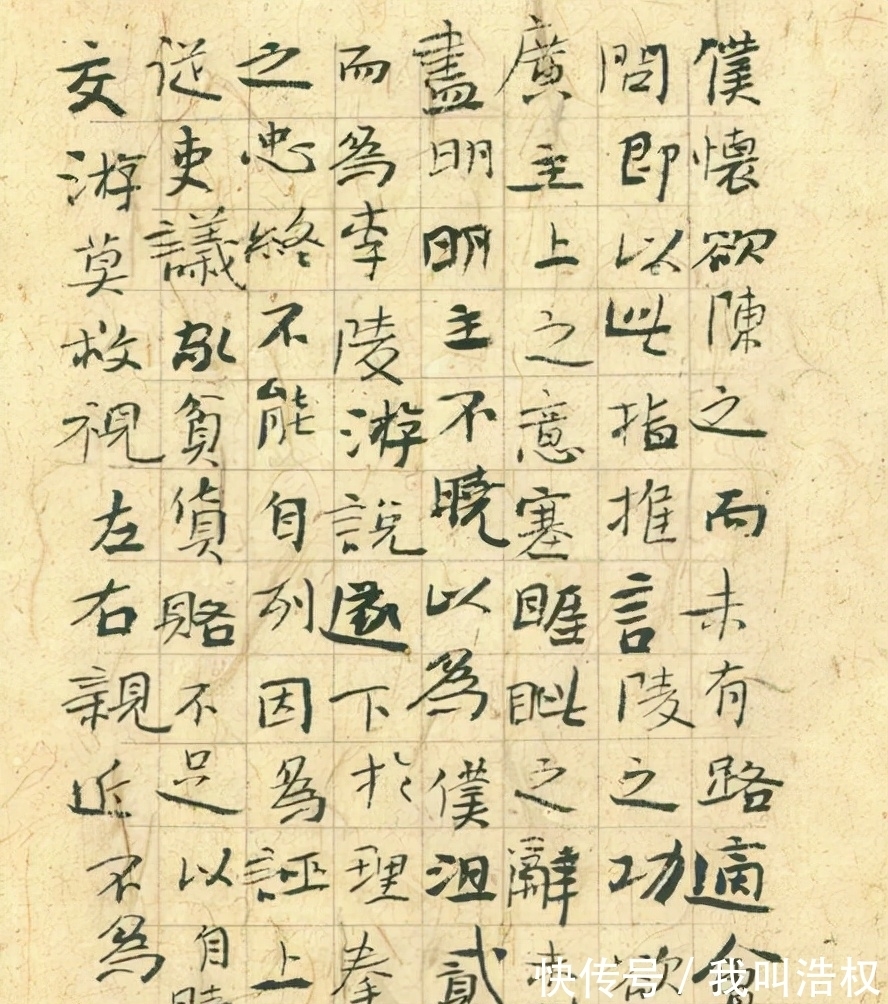 僕懷欲陳之而未有路適會
問即以此指推言陵之功欲
廣主上之意塞睚眦之辭未
盡明明主不曉以為僕沮貳
而為李陵游說遂下於理拳
之忠終不能自列因為誣上
從吏議家貧貨賂不足以自
交游莫救視左右親近不為
快传号/我叫浩权